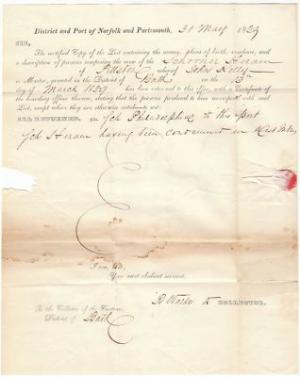 District and Port of Norfolk and Portsmouth, 31 May 1839
SIR,
The certified Copy of the List containing the names, places of birth, residence, and
a description of persons composing the crew of the Schooner Hiram
of Pittston whereof John
is Master, granted in the District of Bath on the 13th
day of March 1839 has been returned to this office, with a Certificate of
the boarding officer thereon, stating that the persons produced to him correspond with said
List, except where they are otherwise
ARE RETURNED, in Sch Philadelphia to this port
Sch Hiram having been condemned in West Indies
I am, Sir,
Your most obedient servant,
COLLECTOR.
To the Collector of the Customs,
District of Bath